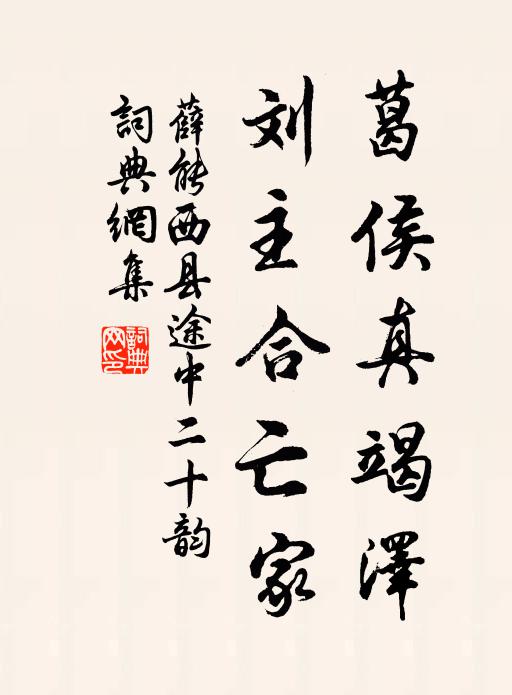 葛侯真竭澤
刘主合亡家
薛能西县途中二十韵
詞典網集
詞典网印